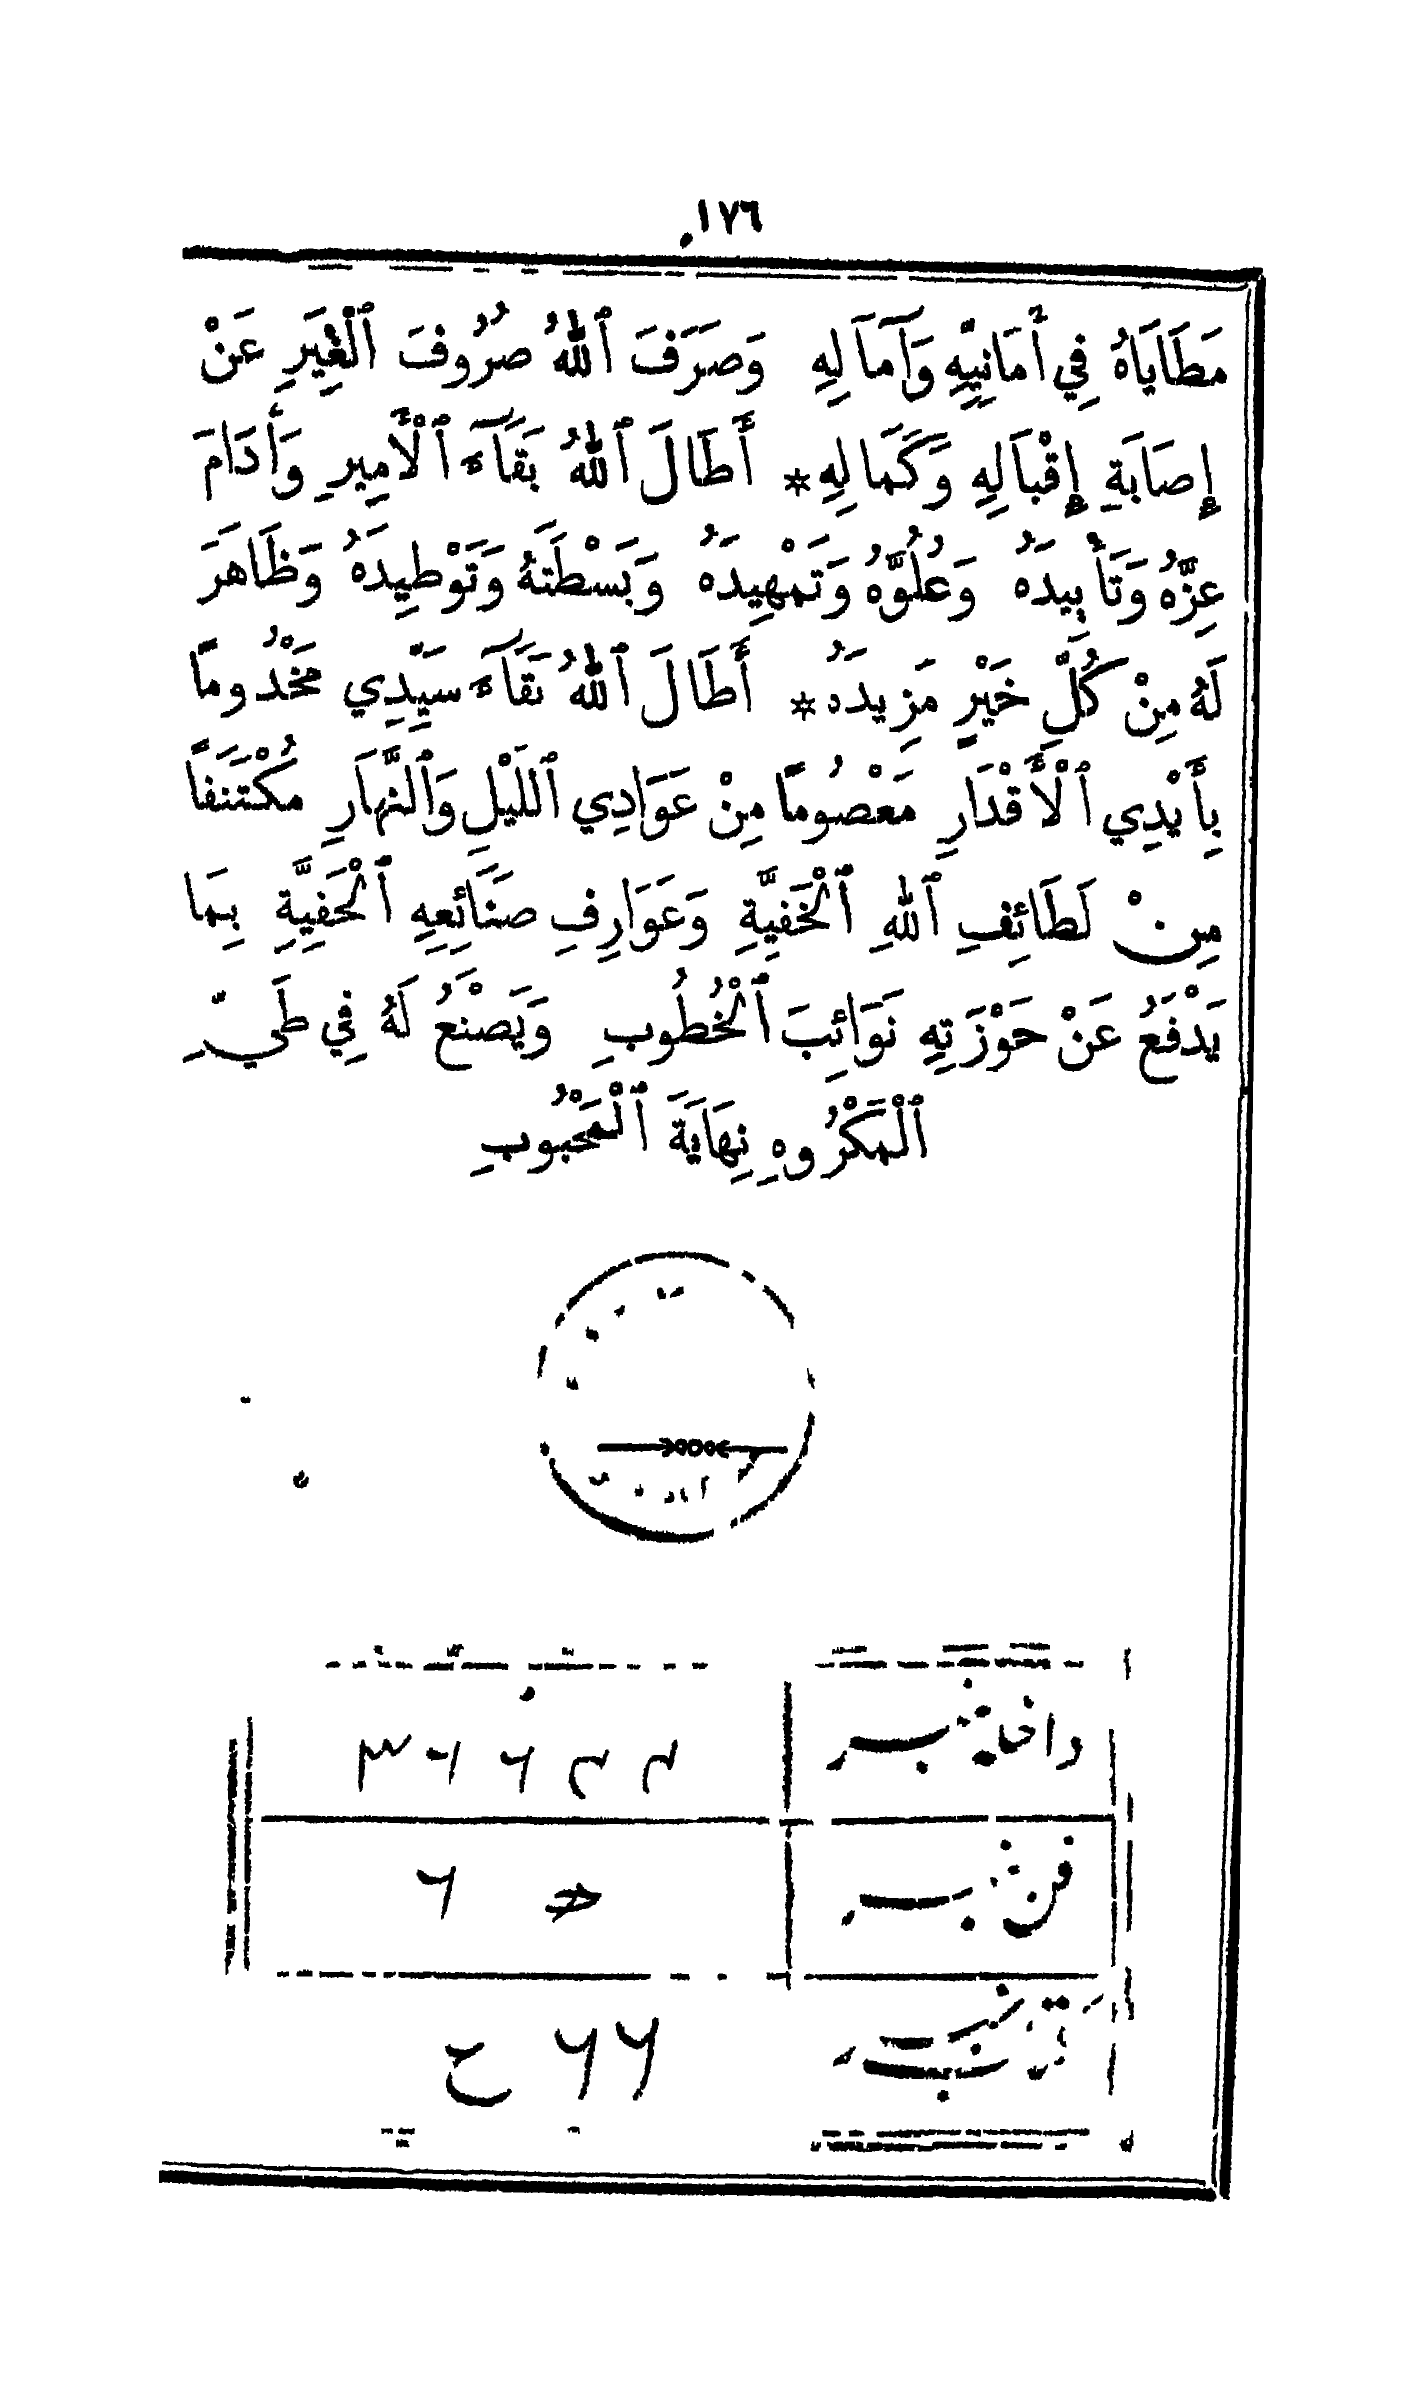 ١٧٦
مَطَايَاهُ فِي أَمَانِيِّهِ وَآمَالِهِ وَصَرَفَ ٱللهُ صُرُوفَ ٱلْغِيَرِ عَنْ
إِصَابَةِ إِقْبَالِهِ وَكَمَالِهِ * أَطَالَ ٱللهُ بَقَآءَ ٱلْأَمِيرِ وَأَدَامَ
عِزَّهُ وَتَأْبِيدَهُ وَعُلُوَّهُ وَتَمْهِيدَهُ وَبَسْطَتَهُ وَتَوْطِيدَهُ وَظَاهَرَ
لَهُ مِنْ كُلِّ خَيْرٍ مَزِيدَهُ * أَطَالَ ٱللهُ بَقَآءَ سَيِّدِي مَخْدُومًا
بِأَيْدِي ٱلْأَقْدَارِ مَعْصُومًا مِنْ عَوَادِي ٱللَّيْلِ وَٱلنَّهَارِ مُكْتَنَفًا
مِنْ لَطَائِفِ ٱللهِ ٱلْخَفِيَّةِ وَعَوَارِفِ صَنَائِعِهِ ٱلْحَفِيَّةِ بِمَا
يَدْفَعُ عَنْ حَوْزَتِهِ نَوَائِبَ ٱلْخُطُوبِ وَيَصْنَعُ لَهُ فِي طَيِّ
ٱلْمَكْرُوهِ نِهَايَةَ ٱلْمَحْبُوبِ